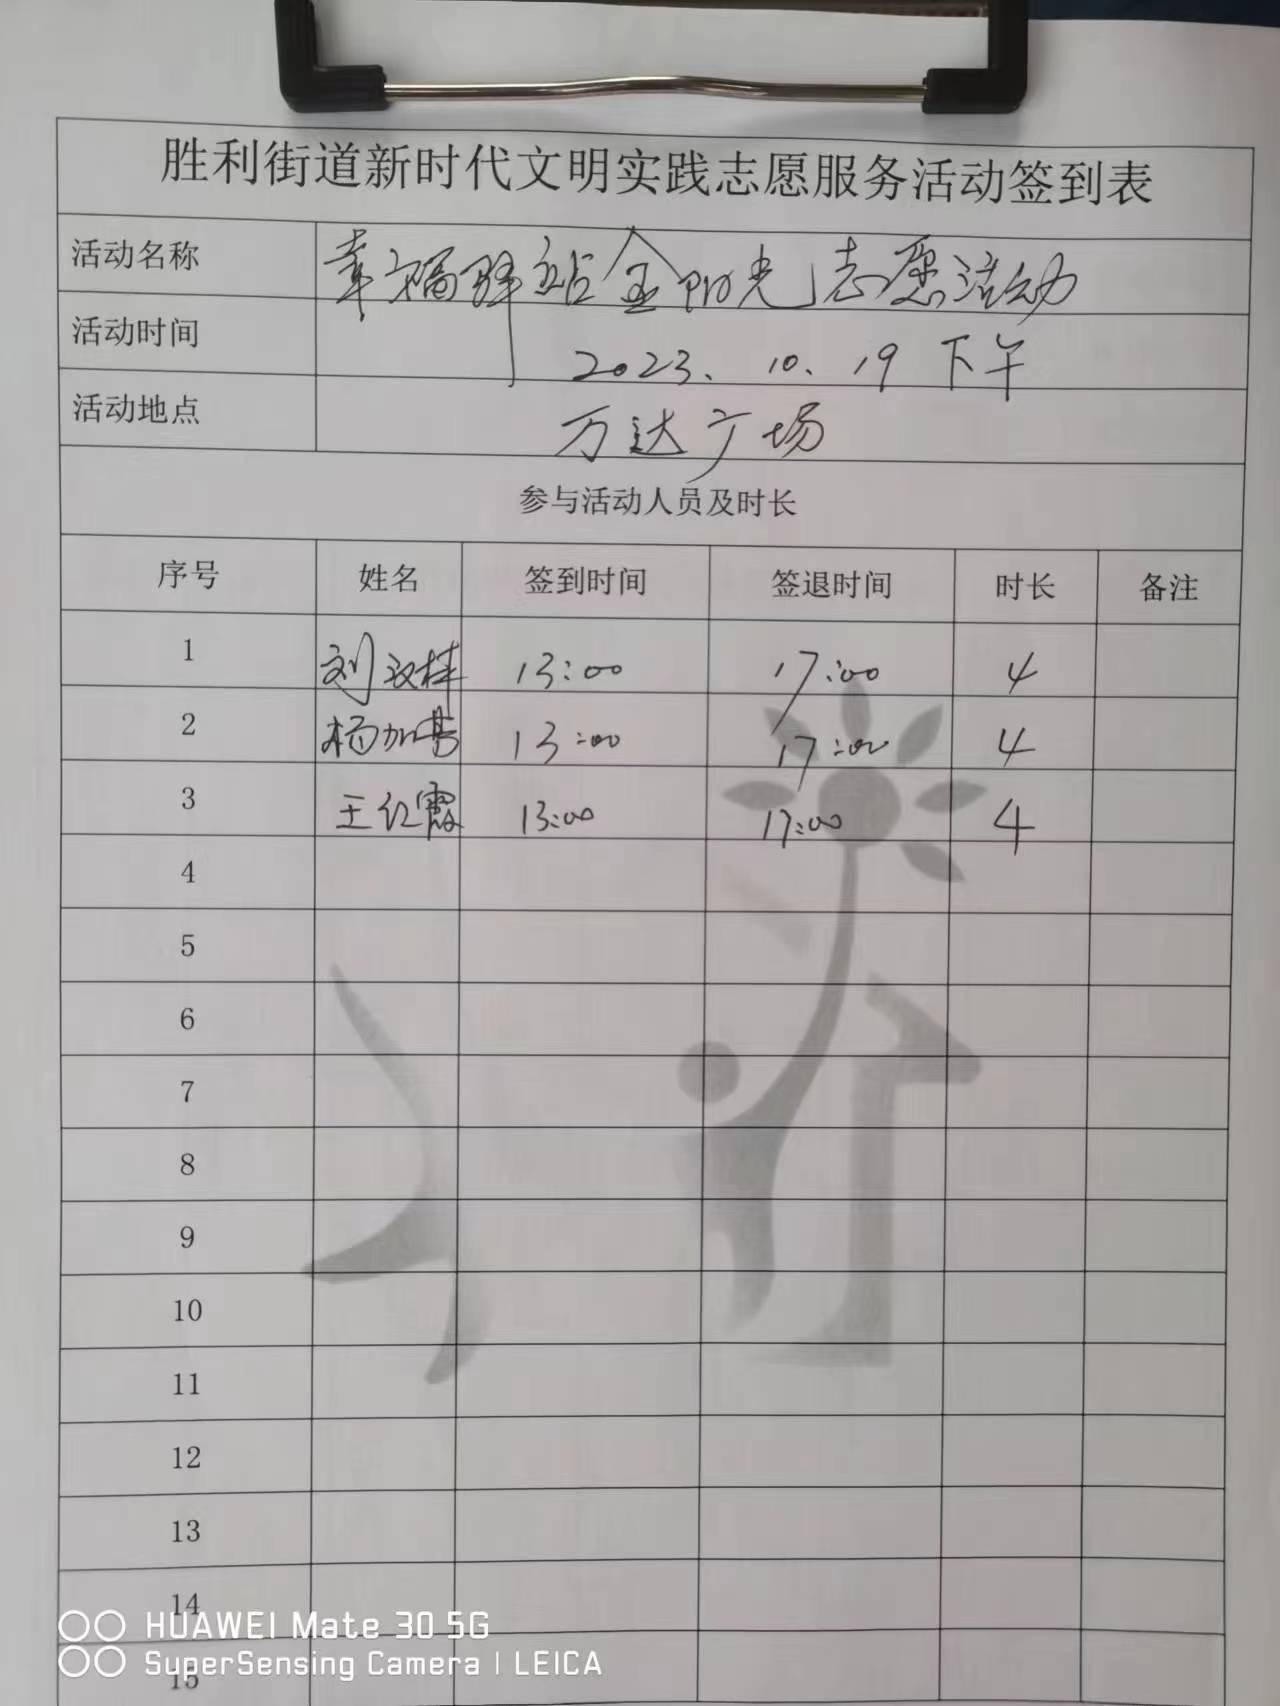 胜利街道新时代文明实践志愿服务活动签到表
活动名称 幸福驿站金阳光志愿活动
活动时间 2023、10、19 下午
活动地点 万达广场
参与活动人员及时长
序号 姓名 签到时间 签退时间 时长 备注
1 刘汉桂 13:00 17:00 4
2 杨加 13:00 17:00 4
3 王红霞 13:00 17:00 4
4
5
6
7
8
9
10
11
12
13
14
HUAWEI Mate 30 5G
SuperSensing Camera | LEICA
15